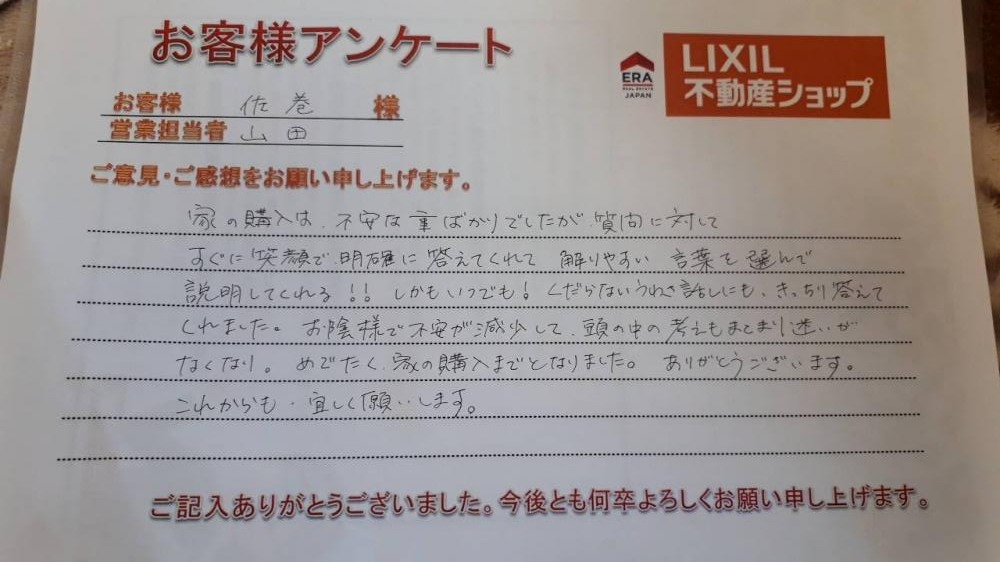 お客様アンケート
ERA
REAL ESTATE
JAPAN
LIXIL
不動産ショップ
お客様 佐巻 様
営業担当者 山田
ご意見・ご感想をお願い申し上げます。
家の購入は、不安な事ばかりでしたが、質問に対して
すぐに笑顔で、明確に答えてくれて 解りやすい 言葉を選んで
説明してくれる!! しかもいつでも! くだらないうわさ話しにも、きっちり答えて
くれました。 お陰様で不安が減少して、頭の中の考えもまとまり迷いが
なくなり。 めでたく、家の購入までとなりました。 ありがとうございます。
これからも・宜しく願いします。
ご記入ありがとうございました。今後とも何卒よろしくお願い申し上げます。